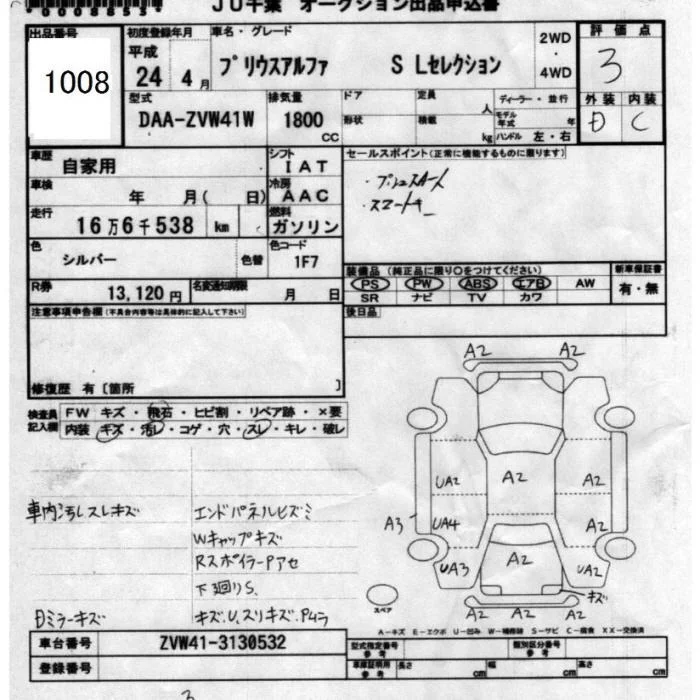 0008853
JU千葉 オークション出品申込書
出品番号
1008
初度登録年月
平成
24 4月
車名・グレード
プリウスアルファ S Lセレクション
2WD
・
4WD
評価点
3
外装 内装
D C
型式
DAA-ZVW41W
排気量
1800
CC
ドア
形状
定員
人
積載
kg
ディーラー・並行
モデル年式 年
ハンドル 左・右
車歴
自家用
シフト
IAT
車検
年 月( 日)
冷房
AAC
走行
16万6千538 km
燃料
ガソリン
色
シルバー
色替
色コード
1F7
R券
13,120円
名変通知期限
月 日
セールスポイント(正常に機能するものに限ります)
・プッシュスタート
・スマートキー
装備品(純正品に限り○をつけてください)
PS PW ABS エアB AW
SR ナビ TV カワ
新車保証書
有・無
後日品
注意事項申告欄(不具合内容等は具体的に記入して下さい)
修復歴 有〔箇所 〕
検査員記入欄
FW キズ・飛石・ヒビ割・リペア跡・×要
内装 キズ・汚レ・コゲ・穴・スレ・キレ・破レ
車内汚レスレキズ
エンドパネルヒズミ
Wキャップキズ
RスポイラーPアセ
下廻りS、
Dミラーキズ
キズ、U、スリキズ、Pムラ
A2 A2
A2
UA2 A2
A3 UA4 A2
UA3 A2 UA2
キズ
A2 A2
スペア
A-キズ E-エクボ U-凹み W-補修跡 S-サビ C-腐食 XX-交換済
車台番号
ZVW41-3130532
登録番号
型式指定番号
参考
類別区分番号
参考
車庫証明用
参考
長さ cm
幅 cm
高さ cm
3